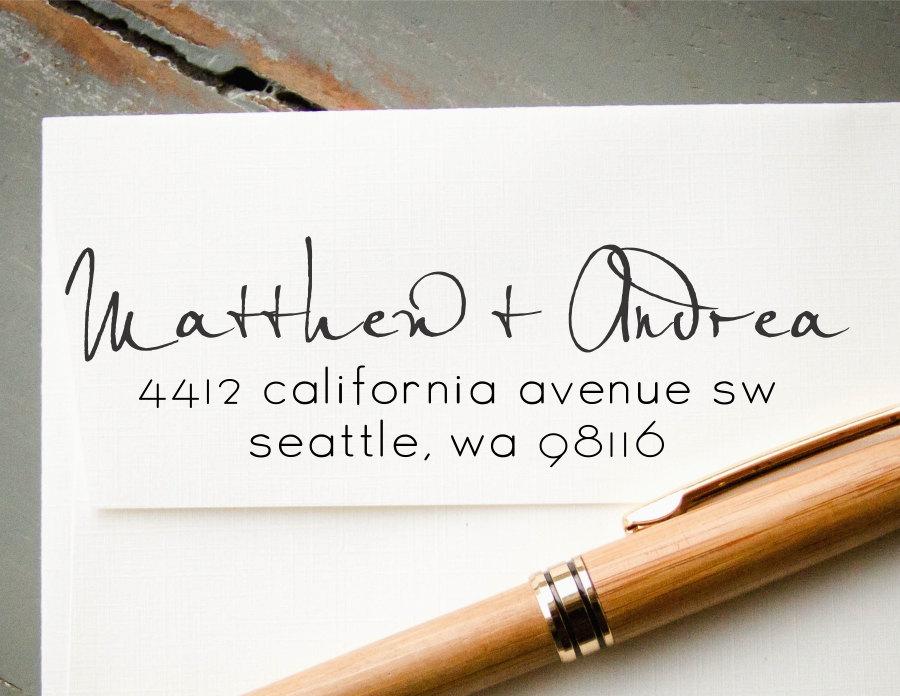 Matthew + Andrea
4412 california avenue sw
seattle, wa 98116